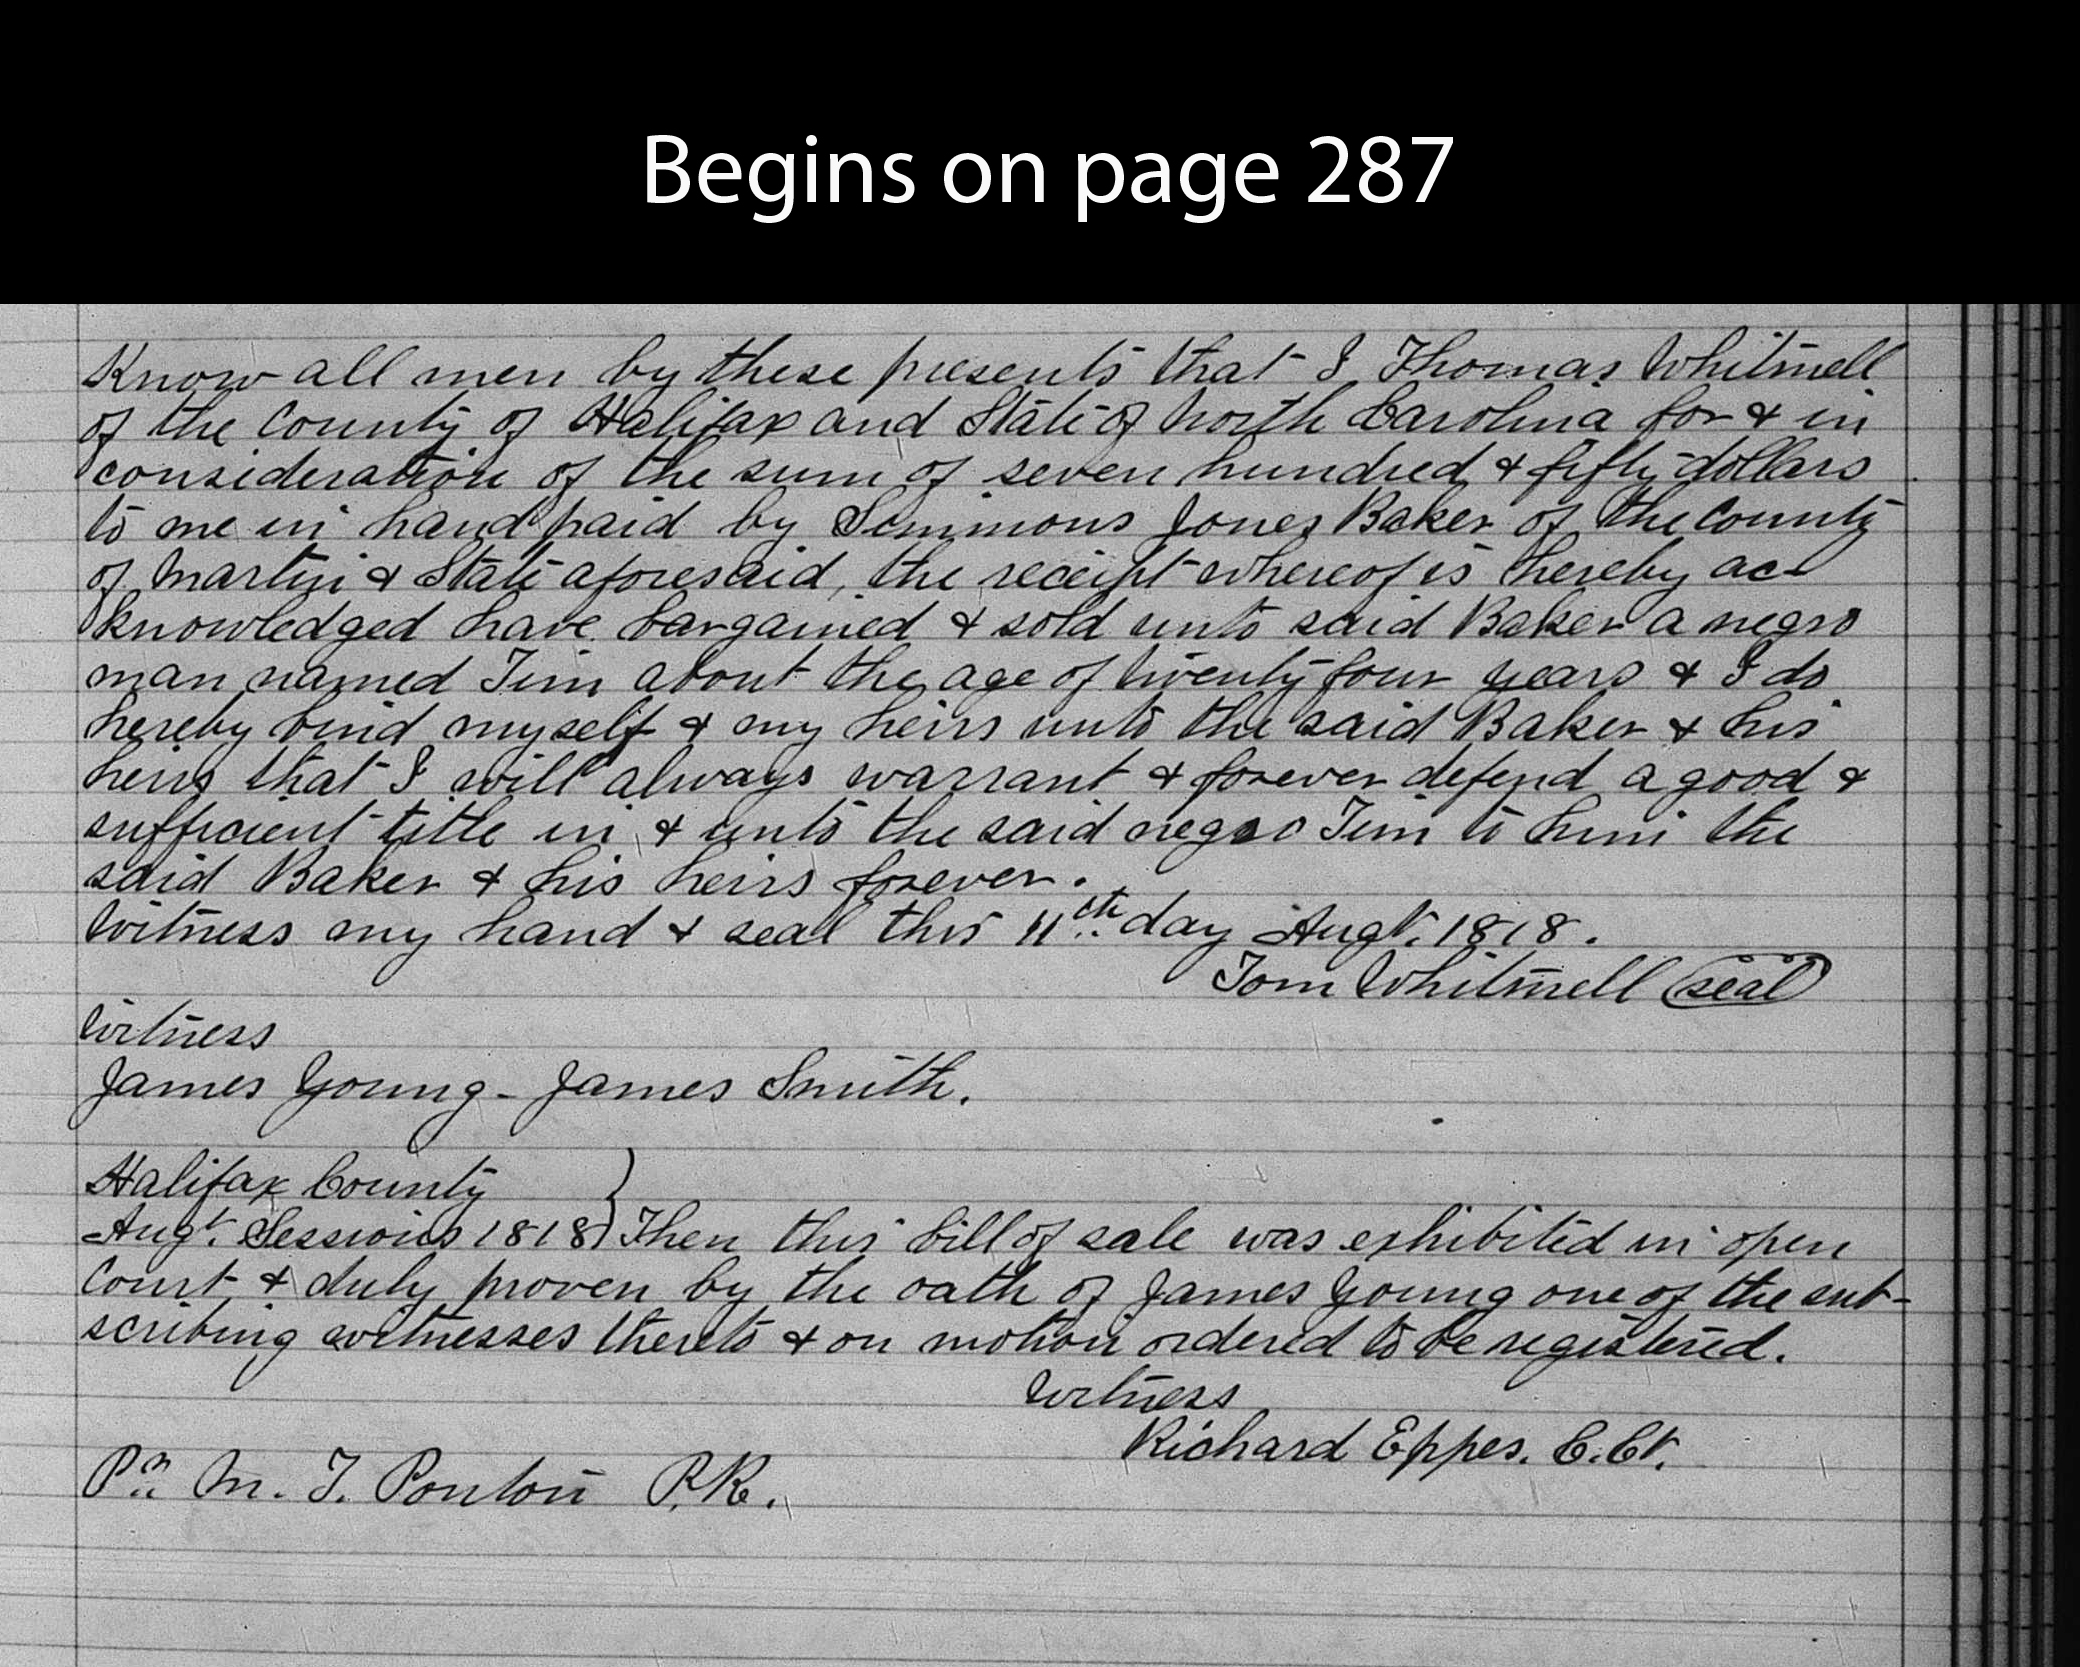 Begins on page 287
Know all men by these presents that I Thomas Whitmell
of the County of Halifax and State of North Carolina for & in
consideration of the sum of seven hundred & fifty dollars
to me in hand paid by Simmons Jones Baker of the County
of Martin & State aforesaid, the receipt whereof is hereby ac-
knowledged have bargained & sold unto said Baker a negro
man named Jim about the age of twenty four years & I do
hereby bind myself & my heirs unto the said Baker & his
heirs that I will always warrant & forever defend a good &
sufficient title in & unto the said negro Jim to him the
said Baker & his heirs forever.
Witness my hand & seal this 11th day Augt. 1818.
Tom Whitmell (seal)
Witness
James Young - James Smith.
Halifax County }
Augt. Sessions 1818 } Then this bill of sale was exhibited in open
Court & duly proven by the oath of James Young one of the sub-
scribing witnesses thereto & on motion ordered to be registered.
Witness
Richard Eppes. C. Ct.
Pr. M. T. Ponton P.R.